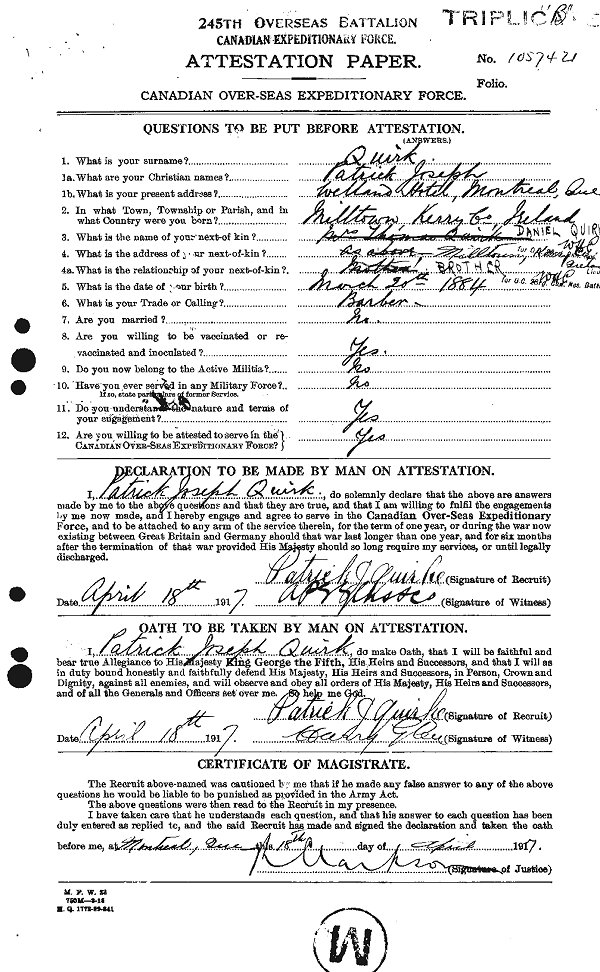 245TH OVERSEAS BATTALION
CANADIAN EXPEDITIONARY FORCE.
TRIPLIC "B"
ATTESTATION PAPER.
No. 1057421
Folio.
CANADIAN OVER-SEAS EXPEDITIONARY FORCE.
QUESTIONS TO BE PUT BEFORE ATTESTATION.
(ANSWERS.)
1. What is your surname? Quirk.
1a. What are your Christian names? Patrick Joseph
1b. What is your present address? Welland Hotel, Montreal Que
2. In what Town, Township or Parish, and in
what Country were you born? Milltown, Kerry Co, Ireland
3. What is the name of your next-of-kin? Mrs Thomas Quirk DANIEL QUIRK
4. What is the address of your next-of-kin? as above Milltown,
4a. What is the relationship of your next-of-kin? Mother BROTHER
5. What is the date of your birth? March 20th 1884
6. What is your Trade or Calling? Barber
7. Are you married? No.
8. Are you willing to be vaccinated or re-
vaccinated and inoculated? Yes.
9. Do you now belong to the Active Militia? No
10. Have you ever served in any Military Force? No
If so, state particulars of former Service.
11. Do you understand the nature and terms of
your engagement? Yes
12. Are you willing to be attested to serve in the
CANADIAN OVER-SEAS EXPEDITIONARY FORCE? Yes
DECLARATION TO BE MADE BY MAN ON ATTESTATION.
I, Patrick Joseph Quirk, do solemnly declare that the above are answers
made by me to the above questions and that they are true, and that I am willing to fulfil the engagements
by me now made, and I hereby engage and agree to serve in the Canadian Over-Seas Expeditionary
Force, and to be attached to any arm of the service therein, for the term of one year, or during the war now
existing between Great Britain and Germany should that war last longer than one year, and for six months
after the termination of that war provided His Majesty should so long require my services, or until legally
discharged.
Patrick J Quirke (Signature of Recruit)
Date April 18th 1917 (Signature of Witness)
OATH TO BE TAKEN BY MAN ON ATTESTATION.
I, Patrick Joseph Quirk, do make Oath, that I will be faithful and
bear true Allegiance to His Majesty King George the Fifth, His Heirs and Successors, and that I will as
in duty bound honestly and faithfully defend His Majesty, His Heirs and Successors, in Person, Crown and
Dignity, against all enemies, and will observe and obey all orders of His Majesty, His Heirs and Successors,
and of all the Generals and Officers set over me. So help me God.
Patrick J Quirke (Signature of Recruit)
Date April 18th 1917 Harry (Signature of Witness)
CERTIFICATE OF MAGISTRATE.
The Recruit above-named was cautioned by me that if he made any false answer to any of the above
questions he would be liable to be punished as provided in the Army Act.
The above questions were then read to the Recruit in my presence.
I have taken care that he understands each question, and that his answer to each question has been
duly entered as replied to, and the said Recruit has made and signed the declaration and taken the oath
before me, at Montreal, Que this 18th day of April 1917.
(Signature of Justice)
M. F. W. 23
750M—2-16
H. Q. 1772-39-841
M